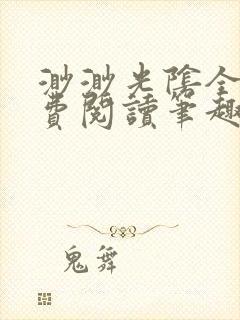 渺渺光陰全
費閱讀筆趣
鬼舞